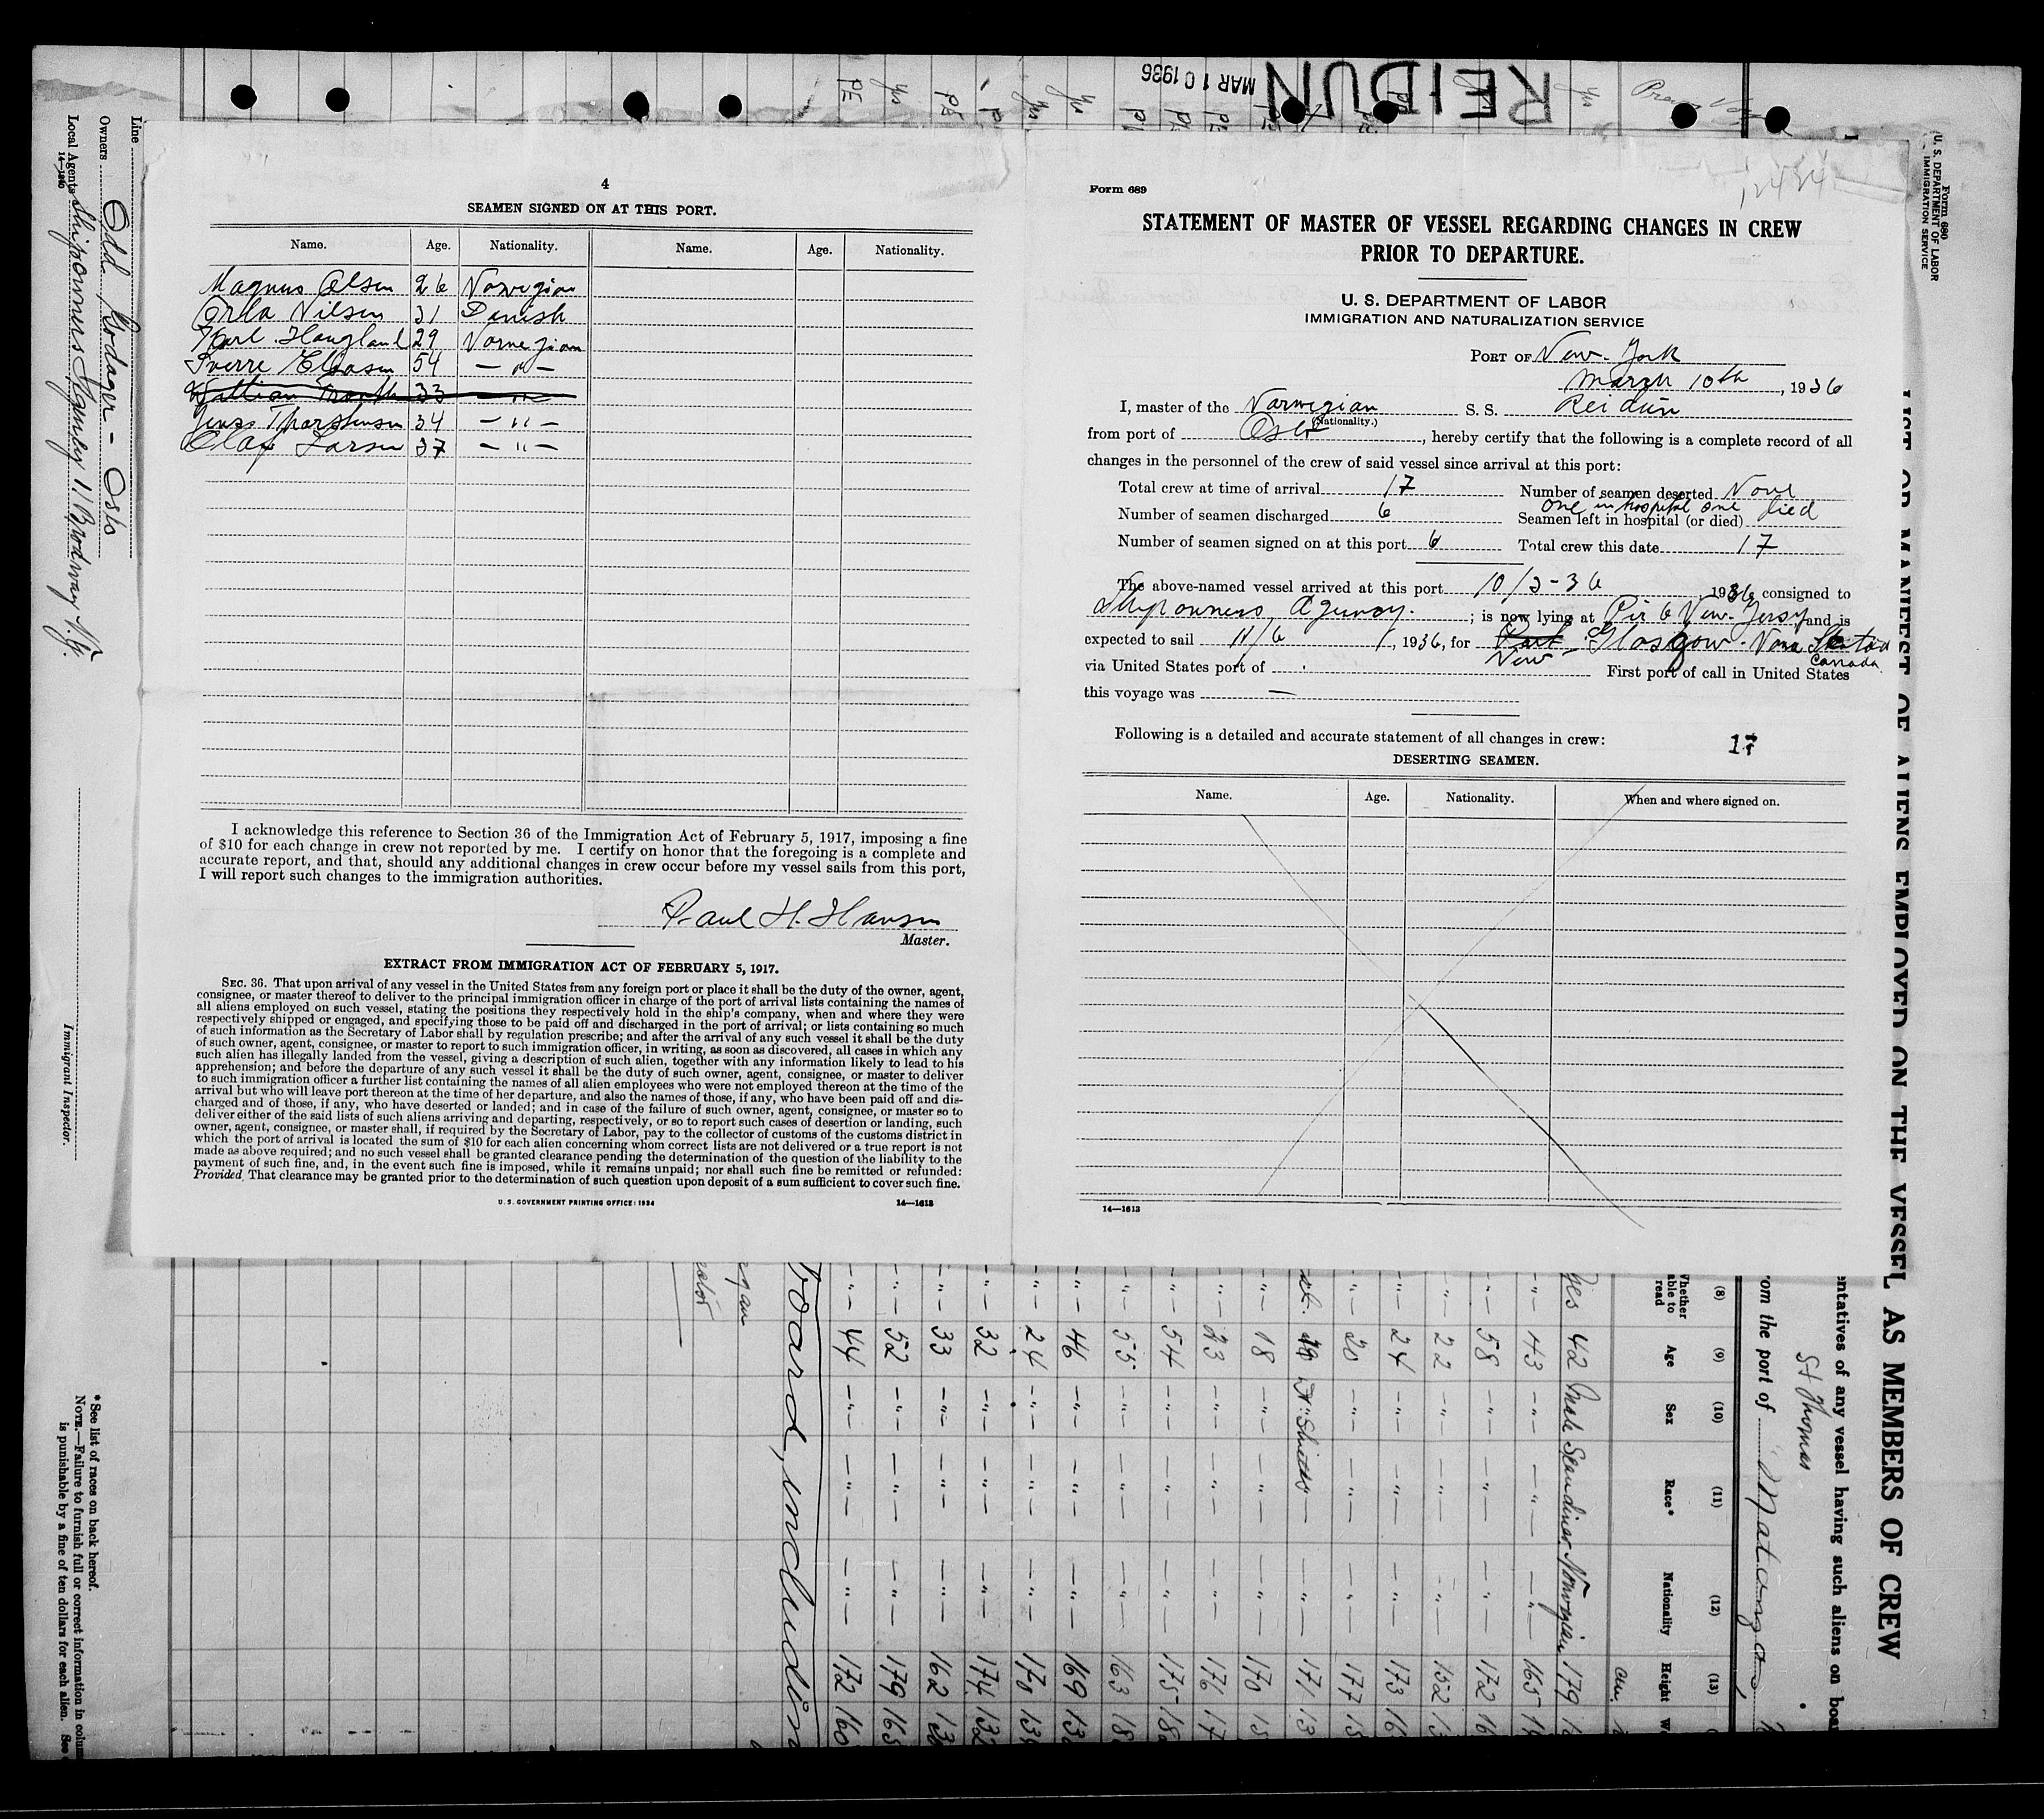 REIDUN
MAR 10 1936
Line
Owners Odd. Godager - Oslo
Local Agents Shipowners Agency 11 Brodway N.Y.
14-1240
Immigrant Inspector.
4
SEAMEN SIGNED ON AT THIS PORT.
Name. Age. Nationality. Name. Age. Nationality.
Magnus Olsen 26 Norwegian
Orla Nilsen 31 Danish
Karl Haugland 29 Norwegian
Sverre 54 — " —
33 — " —
Jens 34 — " —
Olaf Larsen 37 — " —
I acknowledge this reference to Section 36 of the Immigration Act of February 5, 1917, imposing a fine
of $10 for each change in crew not reported by me. I certify on honor that the foregoing is a complete and
accurate report, and that, should any additional changes in crew occur before my vessel sails from this port,
I will report such changes to the immigration authorities.
Paul H. Hansen
Master.
EXTRACT FROM IMMIGRATION ACT OF FEBRUARY 5, 1917.
SEC. 36. That upon arrival of any vessel in the United States from any foreign port or place it shall be the duty of the owner, agent,
consignee, or master thereof to deliver to the principal immigration officer in charge of the port of arrival lists containing the names of
all aliens employed on such vessel, stating the positions they respectively hold in the ship's company, when and where they were
respectively shipped or engaged, and specifying those to be paid off and discharged in the port of arrival; or lists containing so much
of such information as the Secretary of Labor shall by regulation prescribe; and after the arrival of any such vessel it shall be the duty
of such owner, agent, consignee, or master to report to such immigration officer, in writing, as soon as discovered, all cases in which any
such alien has illegally landed from the vessel, giving a description of such alien, together with any information likely to lead to his
apprehension; and before the departure of any such vessel it shall be the duty of such owner, agent, consignee, or master to deliver
to such immigration officer a further list containing the names of all alien employees who were not employed thereon at the time of the
arrival but who will leave port thereon at the time of her departure, and also the names of those, if any, who have been paid off and dis-
charged and of those, if any, who have deserted or landed; and in case of the failure of such owner, agent, consignee, or master so to
deliver either of the said lists of such aliens arriving and departing, respectively, or so to report such cases of desertion or landing, such
owner, agent, consignee, or master shall, if required by the Secretary of Labor, pay to the collector of customs of the customs district in
which the port of arrival is located the sum of $10 for each alien concerning whom correct lists are not delivered or a true report is not
made as above required; and no such vessel shall be granted clearance pending the determination of the question of the liability to the
payment of such fine, and, in the event such fine is imposed, while it remains unpaid; nor shall such fine be remitted or refunded:
Provided, That clearance may be granted prior to the determination of such question upon deposit of a sum sufficient to cover such fine.
U.S. GOVERNMENT PRINTING OFFICE: 1934 14—1613
Form 689
STATEMENT OF MASTER OF VESSEL REGARDING CHANGES IN CREW
PRIOR TO DEPARTURE.
U. S. DEPARTMENT OF LABOR
IMMIGRATION AND NATURALIZATION SERVICE
PORT OF New-York
March 10th, 1936
I, master of the Norwegian S. S. Reidun
(Nationality.)
from port of Oslo, hereby certify that the following is a complete record of all
changes in the personnel of the crew of said vessel since arrival at this port:
Total crew at time of arrival 17 Number of seamen deserted None
Number of seamen discharged 6 one in hospital one died
Seamen left in hospital (or died)
Number of seamen signed on at this port 6 Total crew this date 17
The above-named vessel arrived at this port 10/3-36 1936 consigned to
Shipowners Agency.; is now lying at Pir 6 New-Jersy, and is
expected to sail 11/6, 1936, for Port New-Glasgow. Nova Skotia
Canada
via United States port of . First port of call in United States
this voyage was —
Following is a detailed and accurate statement of all changes in crew: 17
DESERTING SEAMEN.
Name. Age. Nationality. When and where signed on.
14—1613
Form 680
U. S. DEPARTMENT OF LABOR
IMMIGRATION SERVICE
LIST OR MANIFEST OF ALIENS EMPLOYED ON THE VESSEL AS MEMBERS OF CREW
entatives of any vessel having such aliens on boa
St Thomas
rom the port of Matanzas,
(8) (9) (10) (11) (12) (13)
Whether able to read Age Sex Race* Nationality Height
cm.
yes 42 Male Norwegian 179
— " — 43 — " — — " — — " — 165
— " — 58 — " — — " — — " — 172
— " — 22 — " — — " — — " — 152
— " — 24 — " — — " — — " — 173
— " — 20 — " — — " — — " — 177
171
— " — 18 — " — — " — — " — 170
— " — 23 — " — — " — — " — 176
— " — 54 — " — — " — — " — 175
— " — 55 — " — — " — — " — 163
— " — 46 — " — — " — — " — 169
— " — 24 — " — — " — — " — 170
— " — 32 — " — — " — — " — 174 132
— " — 33 — " — — " — — " — 162
— " — 52 — " — — " — — " — 179 165
— " — 44 — " — — " — — " — 172 160
board, includin
* See list of races on back hereof.
NOTE.—Failure to furnish full or correct information in colum
is punishable by a fine of ten dollars for each alien. See